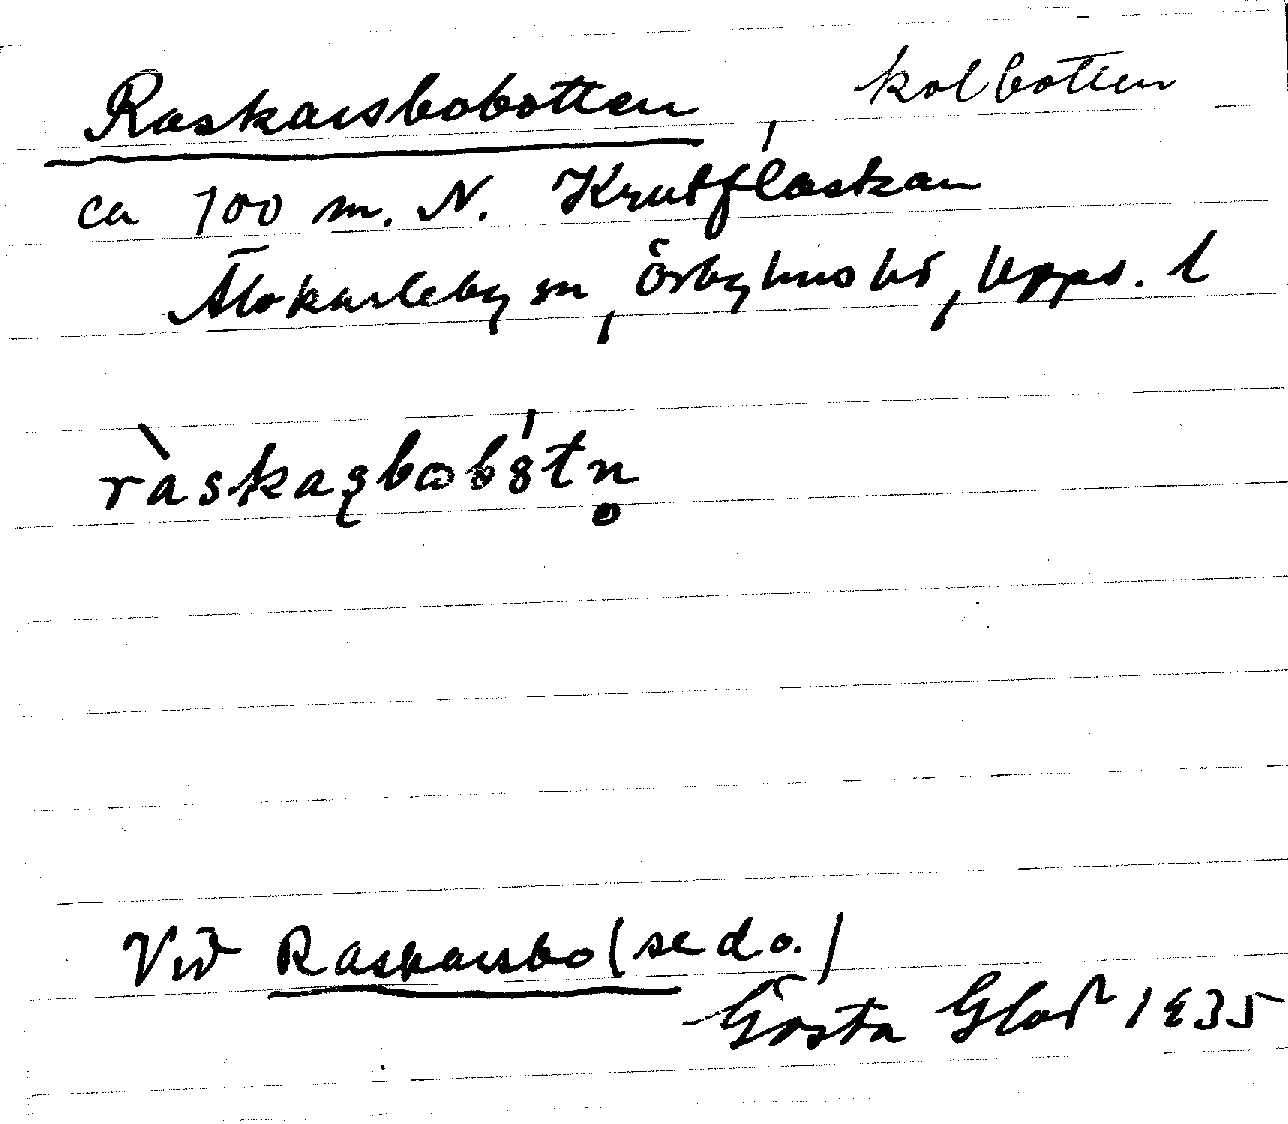 Raskarsbobotten, kolbotten
ca 700 m. N. Krutflaskan
Älvkarleby sn, Örbyhus hd, Upps. l
ràskaʂbobótn̥
Vid Raskarsbo (se d.o.)
Gösta Glad 1935